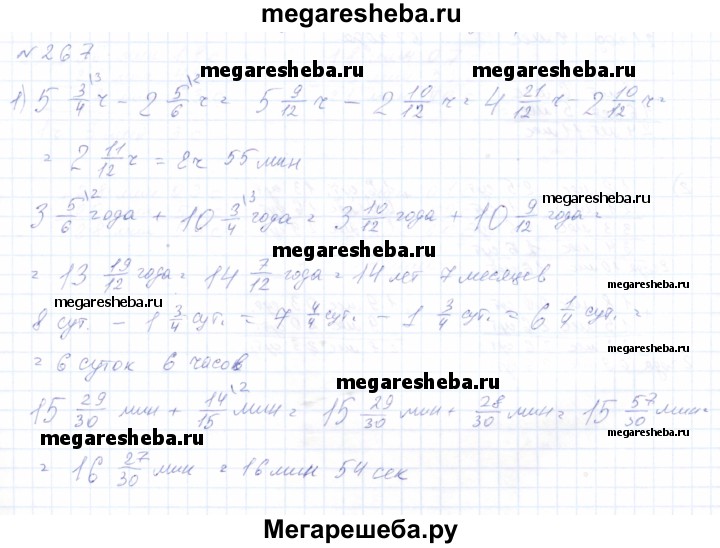 megaresheba.ru
№ 267
megaresheba.ru
1) 5 3/4 \3 ч - 2 5/6 \2 ч = 5 9/12 ч - 2 10/12 ч = 4 21/12 ч - 2 10/12 ч =
= 2 11/12 ч = 2ч 55 мин
megaresheba.ru
3 5/6 \2 года + 10 3/4 \3 года = 3 10/12 года + 10 9/12 года =
megaresheba.ru
= 13 19/12 года = 14 7/12 года = 14 лет 7 месяцев
megaresheba.ru
8 сут. - 1 3/4 сут. = 7 4/4 сут. - 1 3/4 сут. = 6 1/4 сут. =
megaresheba.ru
= 6 суток 6 часов
megaresheba.ru
15 29/30 мин + 14/15 \2 мин = 15 29/30 мин + 28/30 мин = 15 57/30 мин =
megaresheba.ru
megaresheba.ru
= 16 27/30 мин = 16 мин 54 сек
Мегарешеба.ру